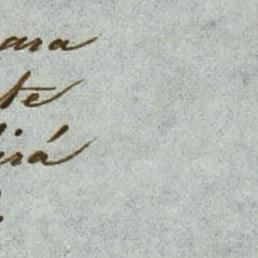 ara
te
irá